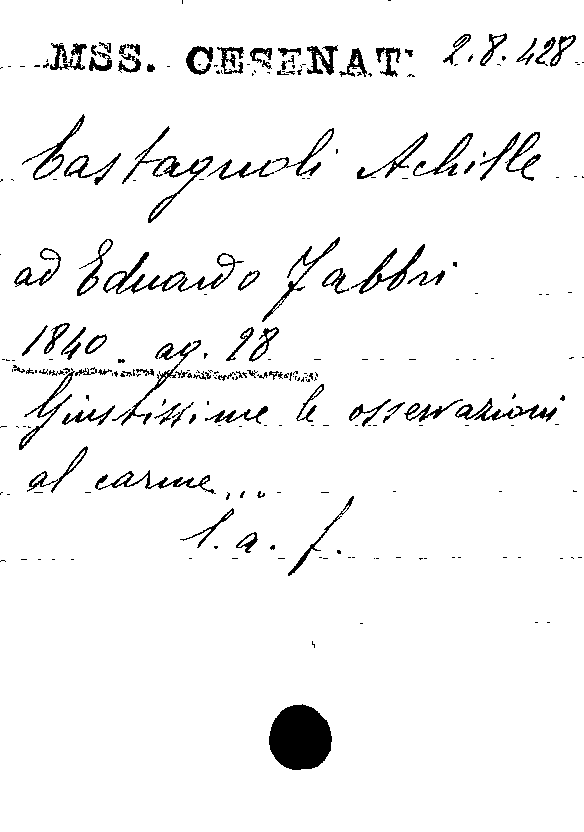 MSS. CESENATI 2.8.428
Castagnoli Achille
ad Eduardo Fabbri
1840. ag. 28
Giustissime le osservazioni
al carme...
l. a. f.